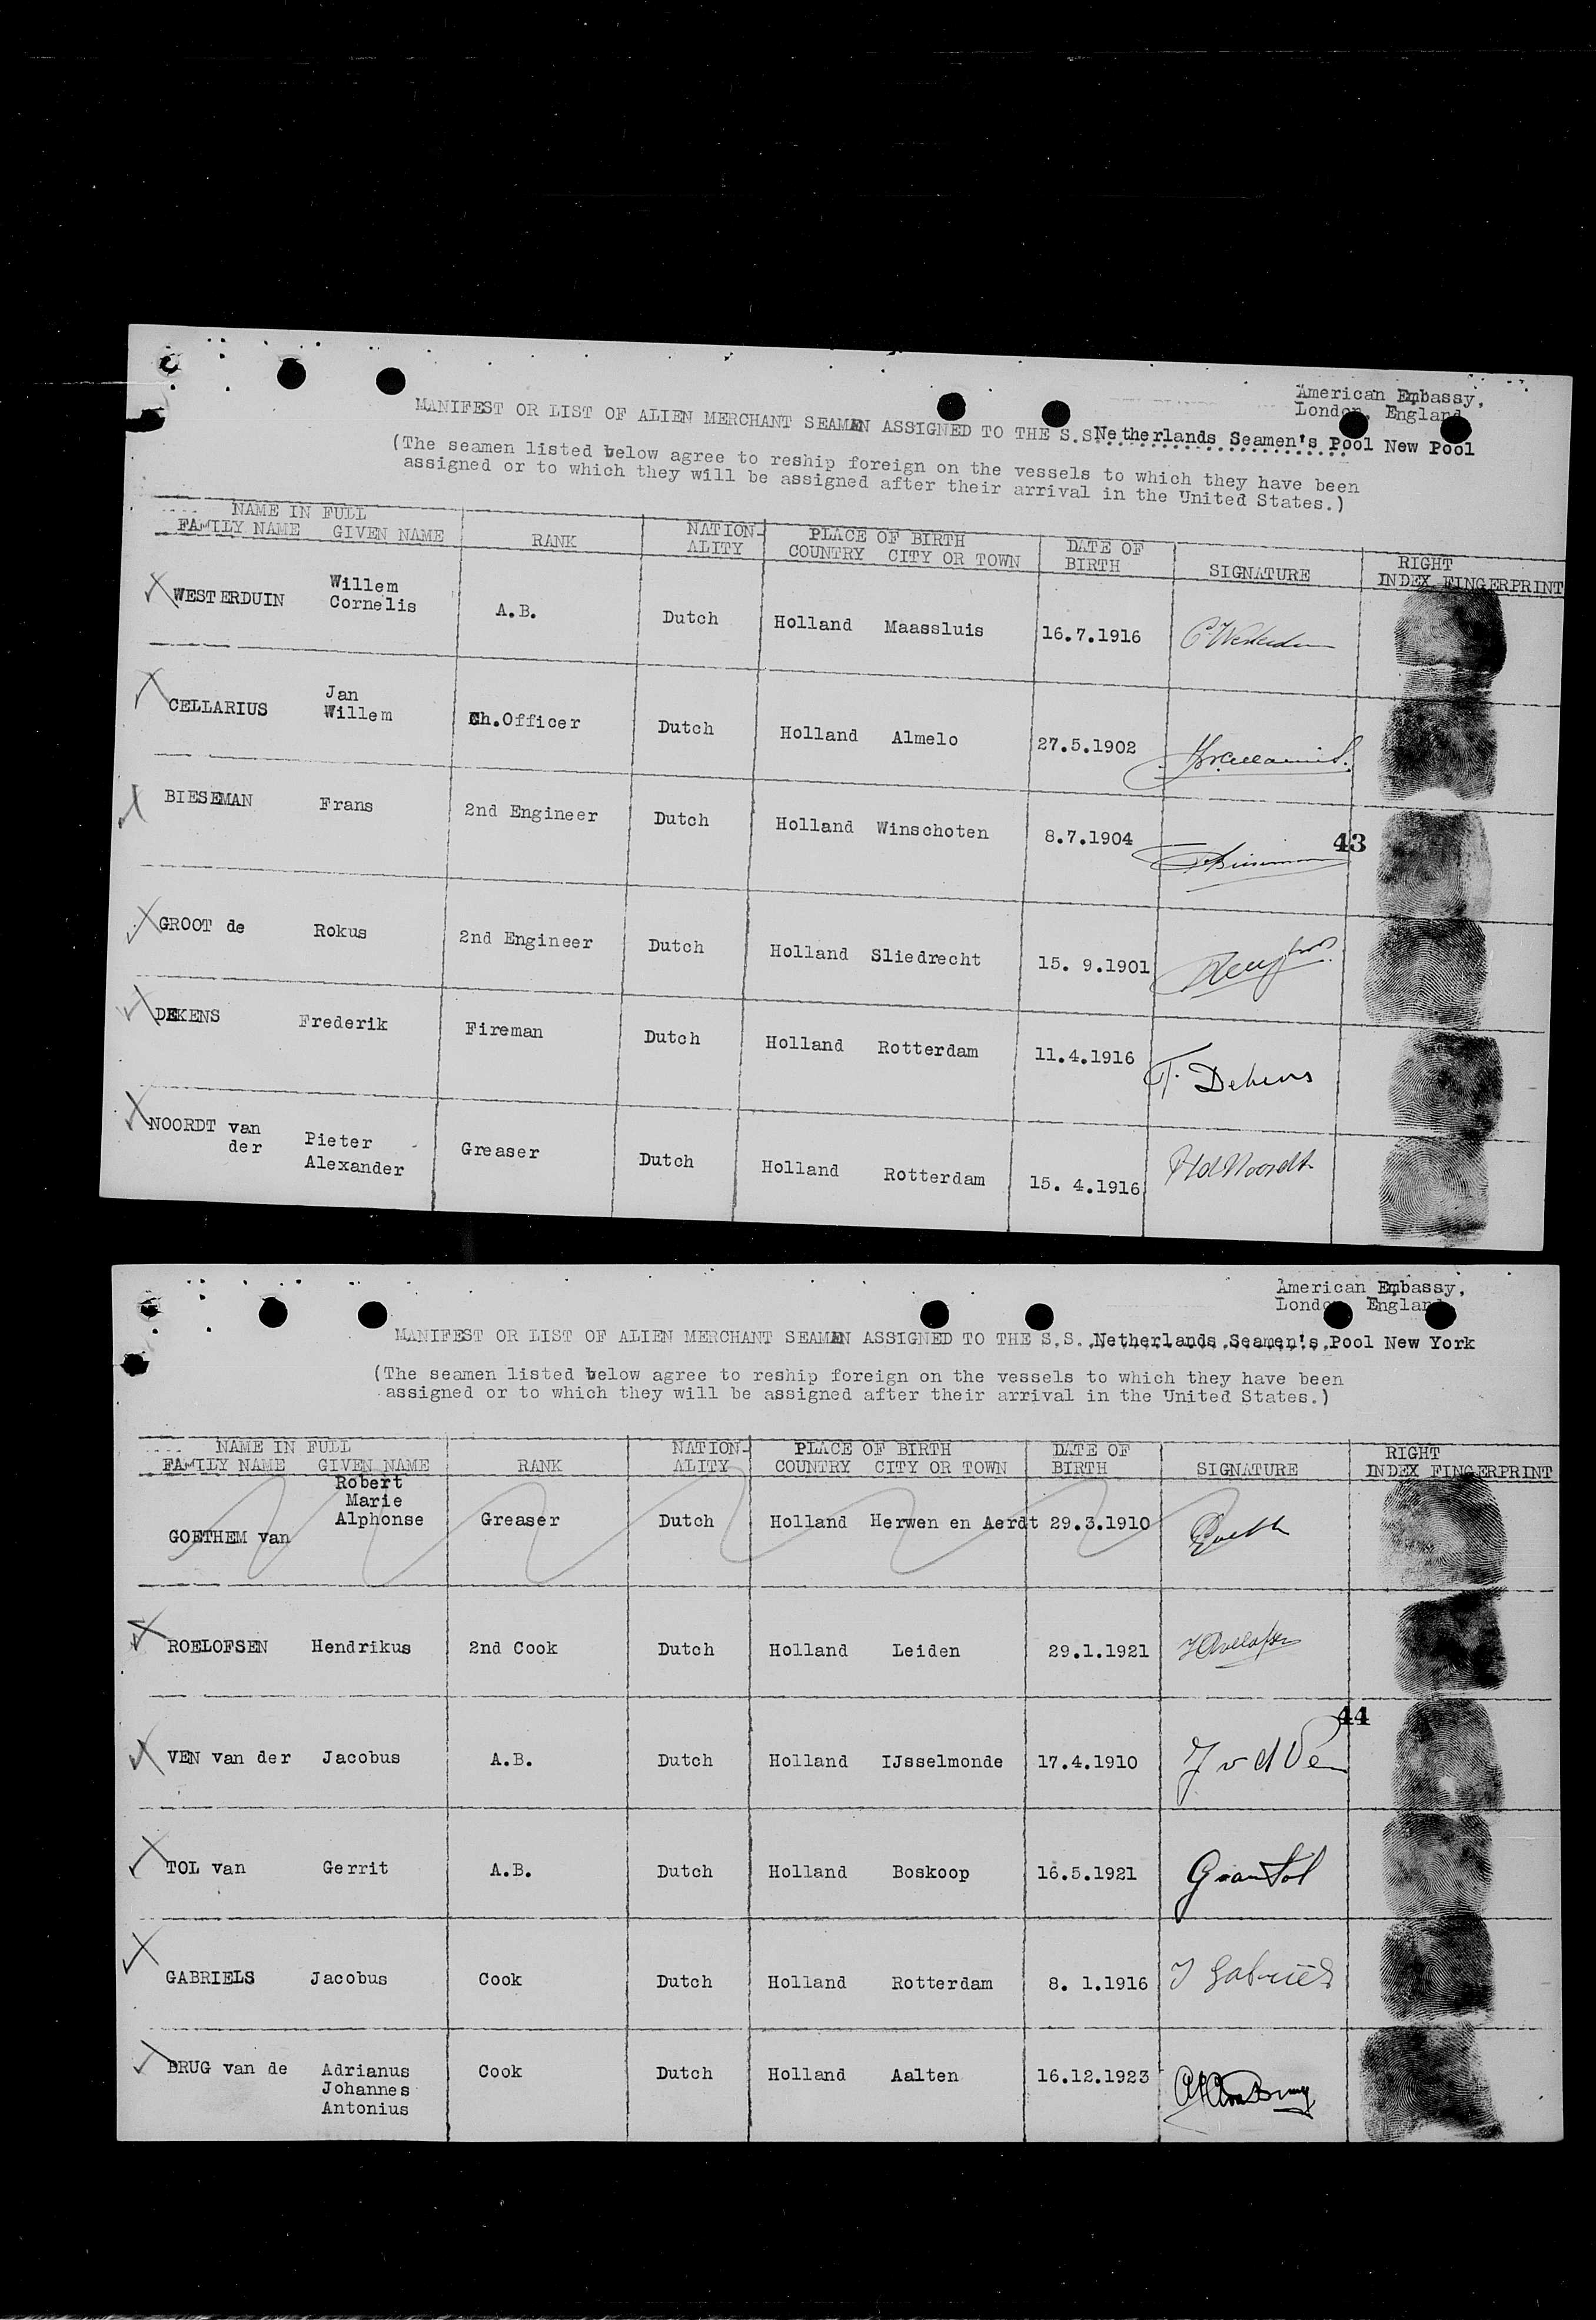 American Embassy,
London, England
MANIFEST OR LIST OF ALIEN MERCHANT SEAMEN ASSIGNED TO THE S.S. Netherlands Seamen's Pool New Pool
(The seamen listed below agree to reship foreign on the vessels to which they have been
assigned or to which they will be assigned after their arrival in the United States.)
NAME IN FULL NATION- PLACE OF BIRTH DATE OF RIGHT
FAMILY NAME GIVEN NAME RANK ALITY COUNTRY CITY OR TOWN BIRTH SIGNATURE INDEX FINGERPRINT
WESTERDUIN Willem Cornelis A.B. Dutch Holland Maassluis 16.7.1916
CELLARIUS Jan Willem Ch.Officer Dutch Holland Almelo 27.5.1902
BIESEMAN Frans 2nd Engineer Dutch Holland Winschoten 8.7.1904 43
GROOT de Rokus 2nd Engineer Dutch Holland Sliedrecht 15. 9.1901
DEKENS Frederik Fireman Dutch Holland Rotterdam 11.4.1916 F. Dekens
NOORDT van der Pieter Alexander Greaser Dutch Holland Rotterdam 15. 4.1916
American Embassy,
London England
MANIFEST OR LIST OF ALIEN MERCHANT SEAMEN ASSIGNED TO THE S.S. Netherlands Seamen's Pool New York
(The seamen listed below agree to reship foreign on the vessels to which they have been
assigned or to which they will be assigned after their arrival in the United States.)
NAME IN FULL NATION- PLACE OF BIRTH DATE OF RIGHT
FAMILY NAME GIVEN NAME RANK ALITY COUNTRY CITY OR TOWN BIRTH SIGNATURE INDEX FINGERPRINT
GOETHEM van Robert Marie Alphonse Greaser Dutch Holland Herwen en Aerdt 29.3.1910
ROELOFSEN Hendrikus 2nd Cook Dutch Holland Leiden 29.1.1921
44
VEN van der Jacobus A.B. Dutch Holland IJsselmonde 17.4.1910 J v d Ven
TOL van Gerrit A.B. Dutch Holland Boskoop 16.5.1921 G van Tol
GABRIELS Jacobus Cook Dutch Holland Rotterdam 8. 1.1916 J Gabriels
BRUG van de Adrianus Johannes Antonius Cook Dutch Holland Aalten 16.12.1923